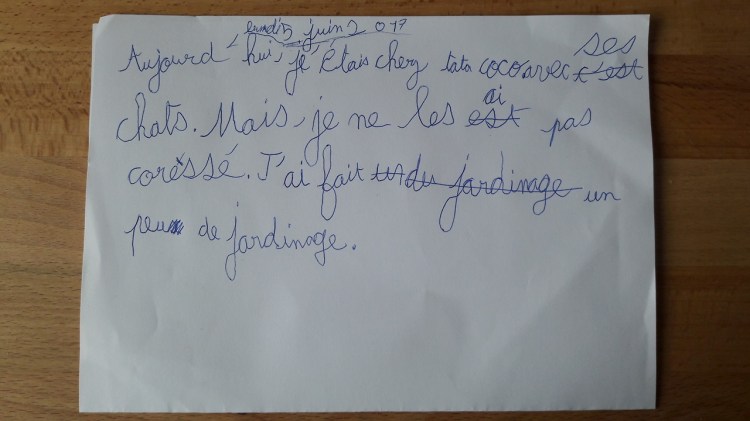 lundi 5 juin 2017
Aujourd'hui, je étais cherz tata coco avec c'est ses
chats. Mais, je ne les est ai pas
coressé. J'ai fait un du jardinage un
peu de jardinage.